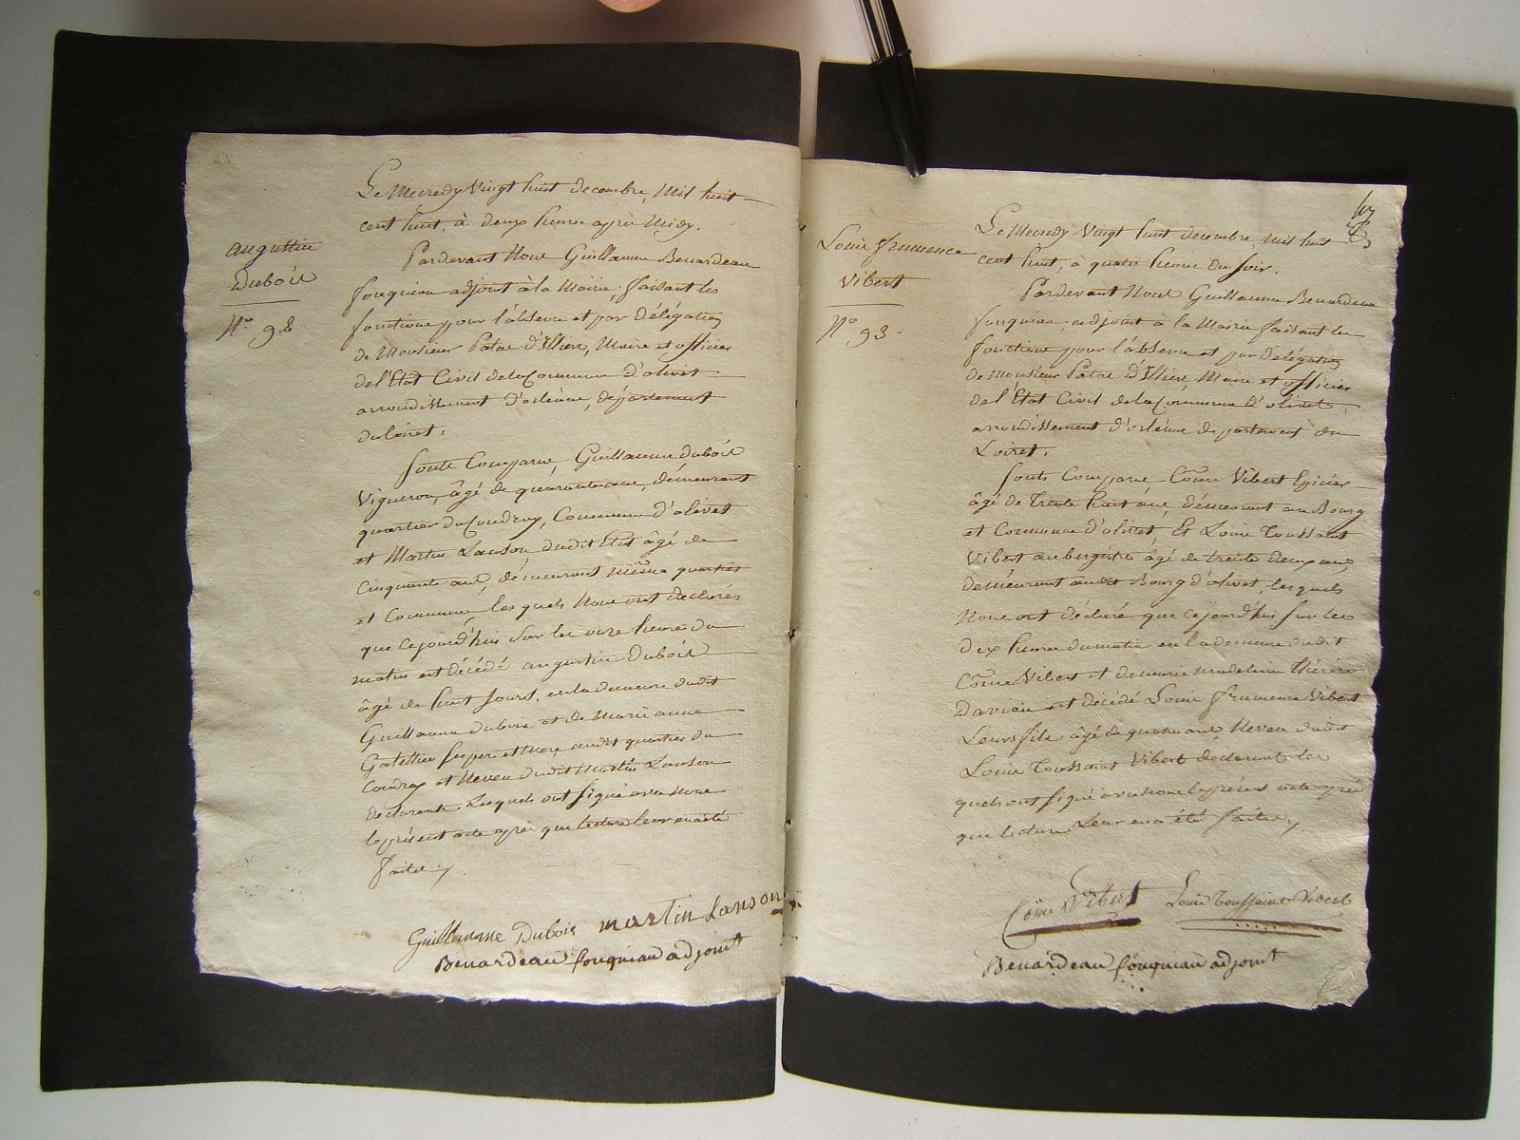 Le Mecredy Vingt huit decembre, Mil huit
cent huit, à deux heures après Midy.
augustin
Dubois
N.º 92
Pardevant Nous Guillaume Benardeau
fouquiau adjoint à la Mairie, faisant les
fonctions pour l'absence et par délégation
de Monsieur Patas d'Illiers, Maire et officier
de l'Etat Civil de la Commune d'olivet
arrondissement d'orléans, département
du loiret.
Sont Comparus, Guillaume dubois
Vigneron, âgé de quarante ans, demeurant
quartier du Coudray, Commune d'olivet
et Martin Lanson dudit Etat âgé de
Cinquante ans, demeurant même quartier
et Commune, lesquels Nous ont declarés
que cejourd'hui sur les onze heures du
matin est décédé augustin Dubois
âgé de huit Jours, en la demeure dudit
Guillaume dubois et de Marie anne
ses pere et Mere, audit quartier du
Coudray et Neveu dudit Martin Lanson
declarants. Lesquels ont signé avec Nous
le présent acte après que lecture leur en a été
faite.
Guillaume Dubois martin Lanson
Benardeau fouquiau adjoint
Louis
Vibert
N.º 93.
Le Mecredy Vingt huit decembre, mil huit
cent huit, à quatre heures du soir.
Pardevant Nous Guillaume Benardeau
fouquiau adjoint à la Mairie faisant les
fonctions pour l'absence et par délégation
de Monsieur Patas d'Illiers, Maire et officier
de l'Etat Civil de la Commune d'olivet,
arrondissement d'orléans departement du
Loiret.
Sont Comparus Côme Vibert Epicier
âgé de Trente huit ans, demeurant au Bourg
et Commune d'olivet, Et Louis Toussaint
Vibert aubergiste âgé de trente deux ans
demeurant audit Bourg d'olivet, lesquels
Nous ont déclaré que cejourd'hui sur les
dix heures du matin en la demeure dudit
Côme Vibert et de Marie Madeleine Thérèse
est décédé Louis Vibert
Leurs fils âgé de quatre ans, Neveu dudit
Louis Toussaint Vibert declarants les
quels ont signé avec Nous le présent acte après
que lecture Leur en a été faite.
Côme Vibert Louis Toussaint Vibert
Benardeau fouquiau adjoint